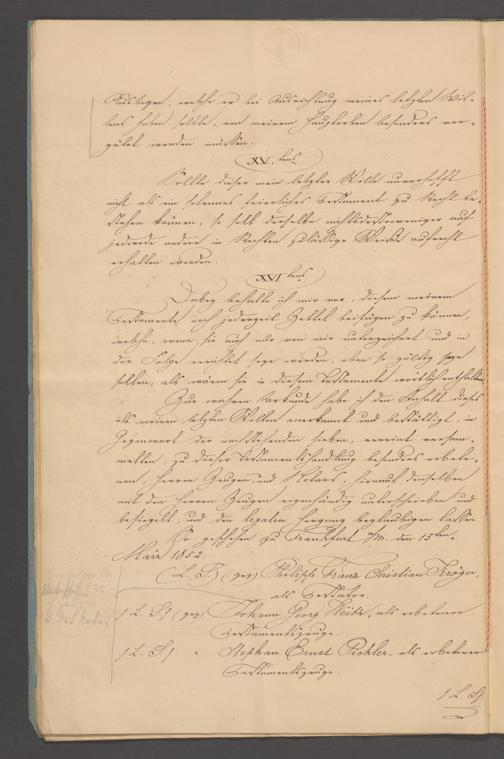 Auslagen, welche er bei Ausrichtung meines letzten Wil-
lens haben sollte, von meinem Haupterben besonders ver-
gütet werden müssen.
XV.tens
Sollte dieser mein letzter Wille unverhofft
nicht als ein solennes feierliches Testament zu Recht be-
stehen können, so soll derselbe nichtsdestoweniger auf
jede andere in Rechten zulässige Weise aufrecht
erhalten werden.
XVI.tens
Dabey behalte ich mir vor, diesem meinem
Testamente noch jederzeit Zettel beifügen zu können,
welche, wenn sie auch nur von mir unterzeichnet und in
der Folge errichtet seyn würden, eben so gültig seyn
sollen, als wären sie in diesem Testamente wörtlich enthalten.
Zur wahren Urkunde habe ich den Inhalt dieses
als meinen letzten Willen anerkannt und bestätigt, in
Gegenwart der nachstehenden sieben, vereint versam-
melten, zu dieser Testamentshandlung besonders erbete-
nen, Herren Zeugen und Notars, hierauf denselben
mit den Herren Zeugen eigenhändig unterschrieben und
besiegelt, und den legalen Hergang beglaubigen lassen
So geschehen zu Frankfurt a/M. den 15ten
März 1852.
(L. S.) (gez) Philipp Franz Christian Kröger,
als Testator.
(L. S.) (gez) Johann Georg, als erbetener
Testamentszeuge.
(L. S.) " Stephan Ernst Pichler, als erbetener
Testamentszeuge.
(L. S.)